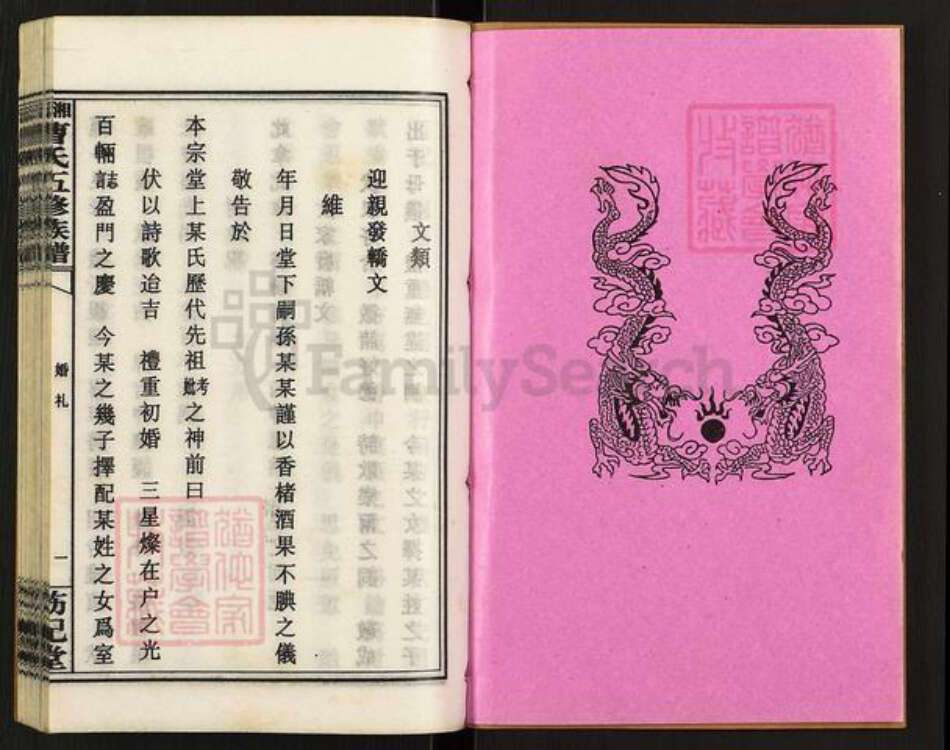 文類
迎親發轎文
維
年月日堂下嗣孫某某謹以香楮酒果不腆之儀
敬告於
本宗堂上某氏歷代先祖考妣之神前曰
伏以詩歌迨吉 禮重初婚 三星燦在户之光
百輛誌盈門之慶 今某之幾子擇配某姓之女爲室
湘曹氏五修族譜
婚礼
一
FamilySearch